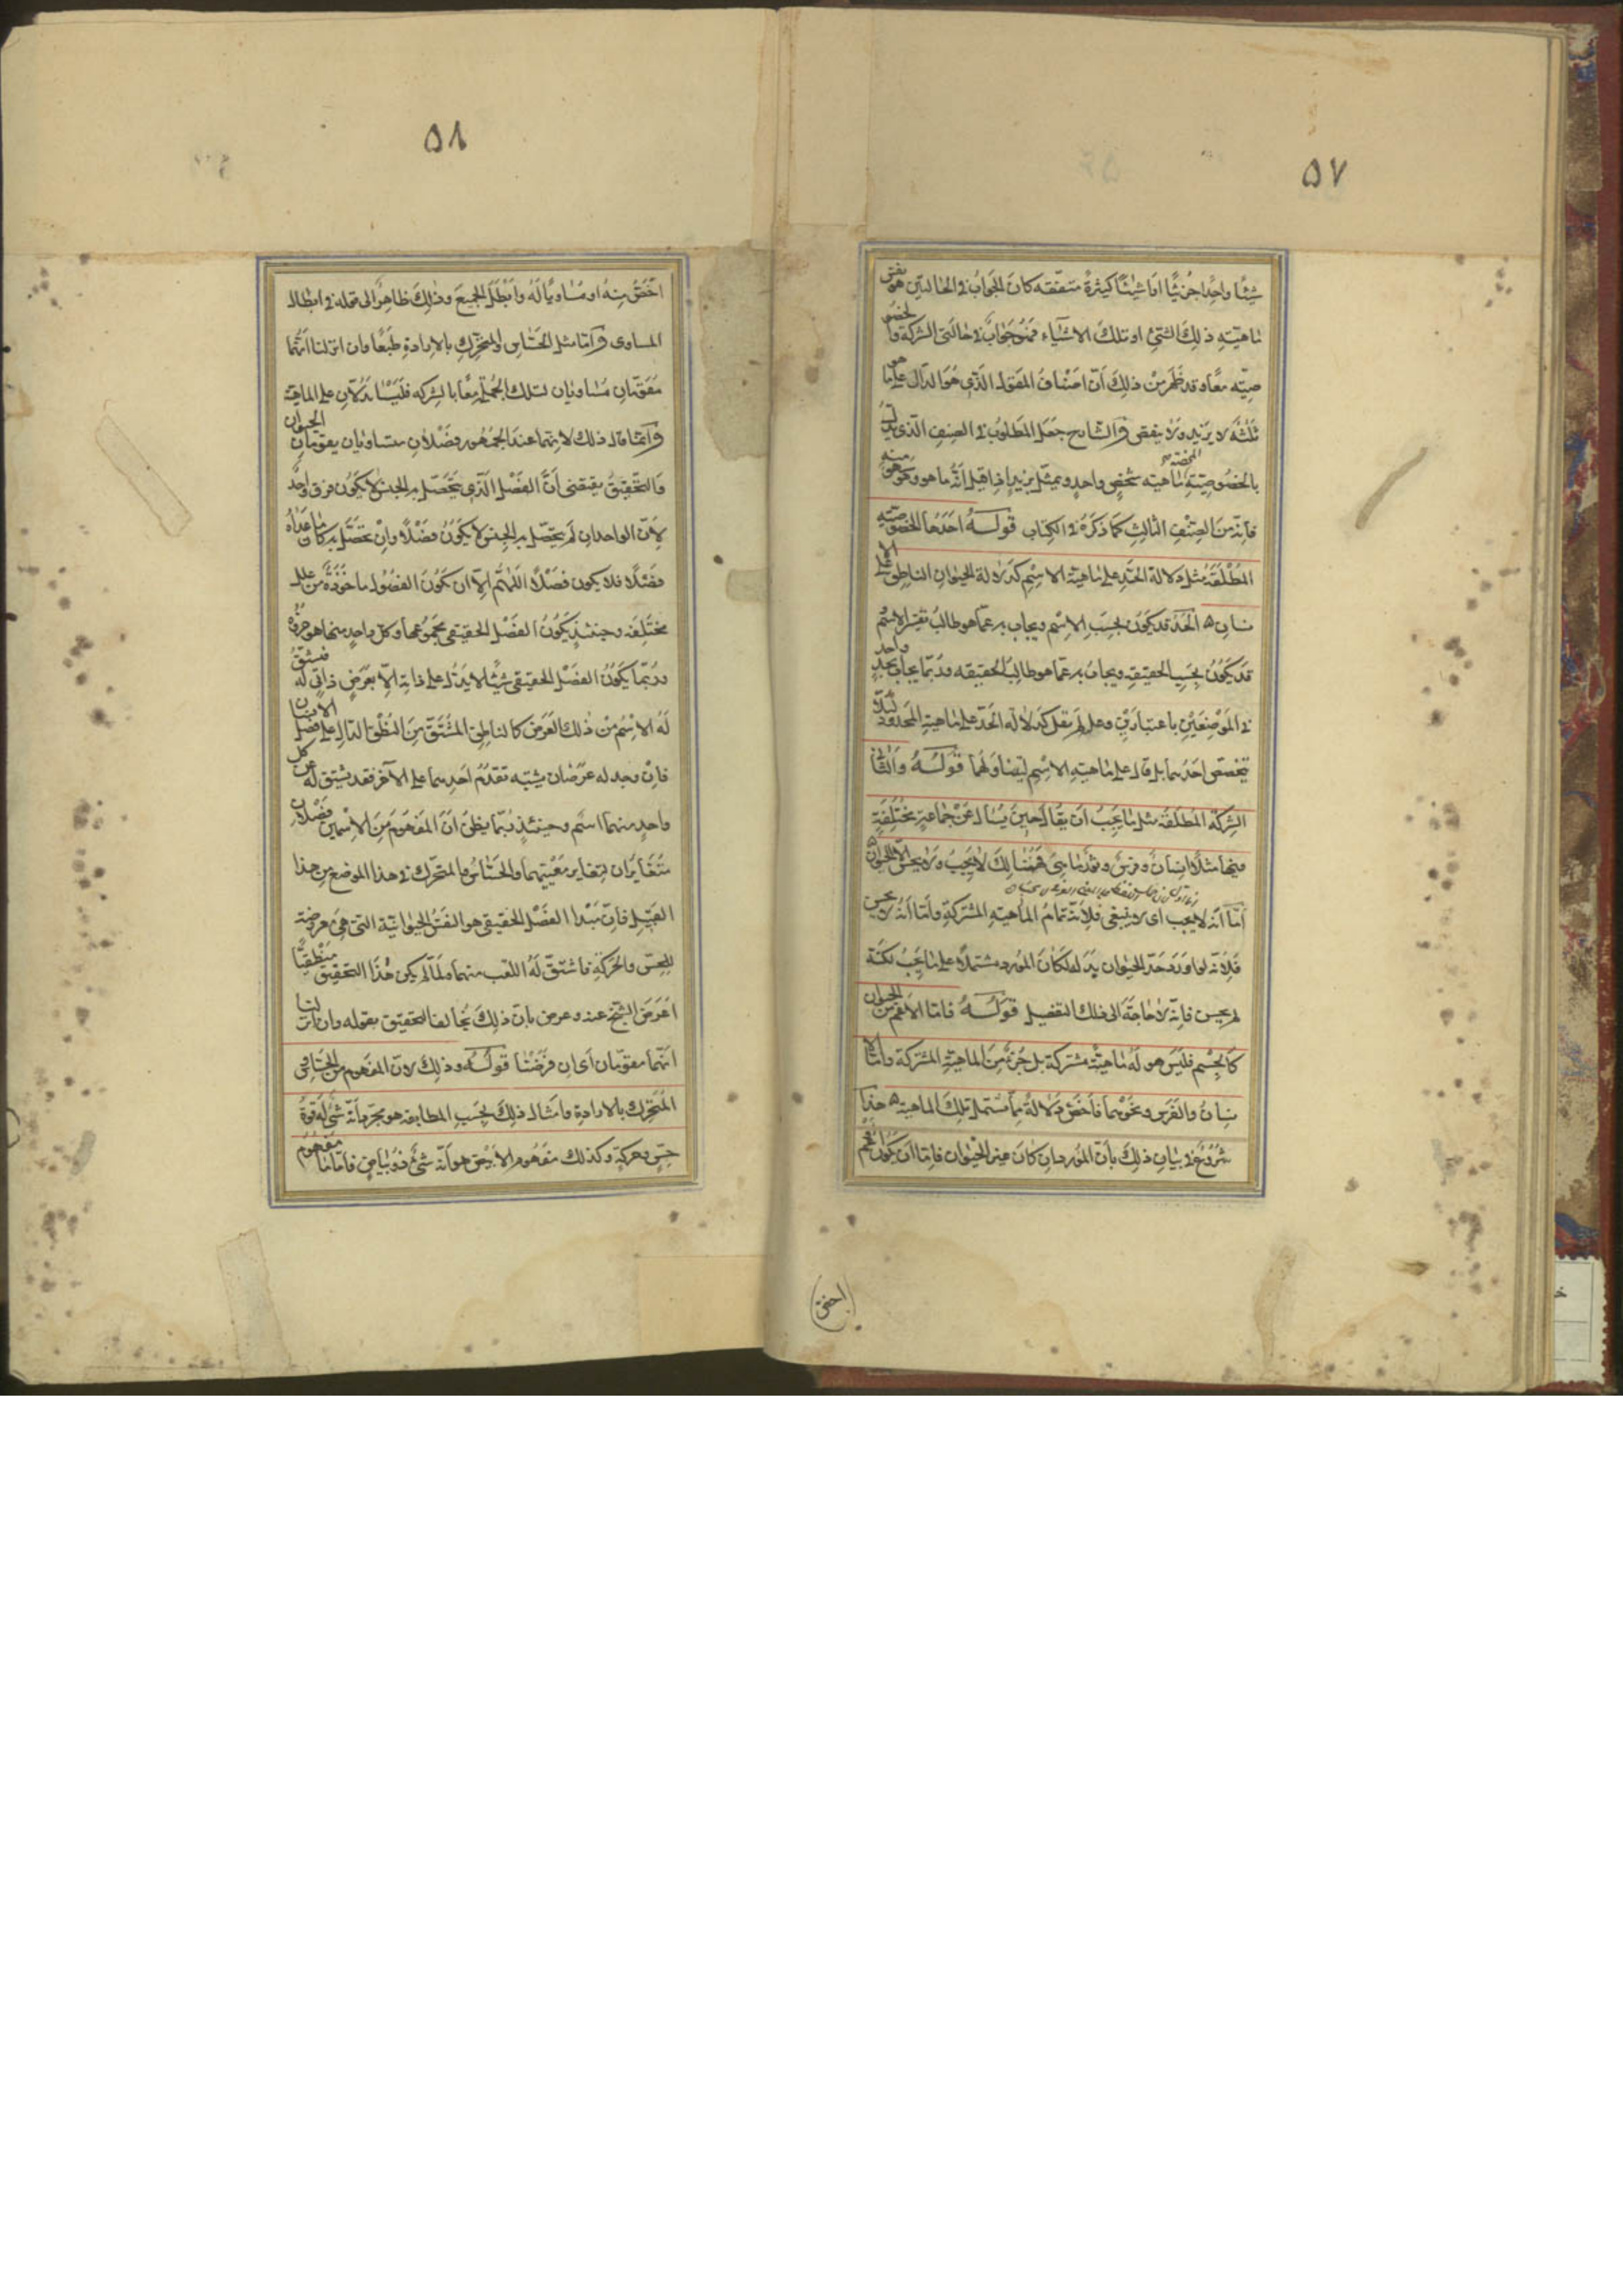 ۵۷
شيئا واحدا جزئيا او اشيئا كثيرة متفقه كان الجواب فى الحالتين هو
ماهيّته ذلك الشئ او تلك الاشيآء فهو جواب فى حالتى الشركة والخصو
صيّه معًا وقد ظهر من ذلك انّ اصناف المقول الذى هو الدال على ما هو
ثلثه لا يزيد ولا ينقص والشارح جعل المطلوب فى الصنف الذى يدل
بالخصوصيّة ماهيّه شخص واحد ويمثّل بزيد اذا قيل انّه ما هو وهو
فانه من الصنف الثالث كما ذكره فى الكتاب قوله احدها بالخصوصيّه
المطلقه مثل دلالة الحدّ على ماهية الاسم كدلالة الحيوان الناطق على الا
نسان ه الحد قد يكون بحسب الاسم ويجاب به عمّا هو طالب تفسير الاسم و
قد يكون بحسب الحقيقه ويجاب به عمّا هو طالب الحقيقه وربّما يجاب بحد واحد
فى الموضعين باعتبارين وهل لم يقل كدلالة الحدّ على ماهية المحدود لئلا
يختصّ احدهما بل قال على ماهية الاسم ليتناولهما قوله والثانى
الشركة المطلقه مثل ما يجب ان يقال حين يسأل عن جماعة مختلفة
فيها مثلًا انسان وفرس وثور ما هى فهنالك لا يجب ولا يحسن الا الحيوان
امّا انه لا يجب اى لا ينبغى فلانّه تمام الماهية المشتركة وامّا انه لا يحسن
فلانّه لو اورد حدّ الحيوان بدله لكان المورد مشتملًا على ما يجب لكنّه
لم يحسن فانه لا حاجة الى ذلك التفصيل قوله فامّا الاعم من الحيوان
كالجسم فليس هو له ماهيّة مشتركة بل جزء من الماهية المشتركة وامّا الا
نسان والفرس ونحوهما فاخصّ دلالة ممّا يشتمل تلك الماهية ه هذا
شروع فى بيان ذلك بانّ المورد ان كان غير الحيوان فامّا ان يكون اعم
(اخص)
۵۸
اخصّ منه او مساويًا له وابطل الجميع وذلك ظاهر الى قوله فى ابطال
المساوى وامّا مثل الحسّاس والمتحرّك بالارادة طبعًا وان انزلنا انّهما
مقوّمان مساويان لتلك الجملة معًا بالشركه فليسا يدلّان على الماهيّة
وانّما قال ذلك لانهما عند الجمهور فصلان متساويان يقوّمان الحيوان
والتحقيق يقتضى انّ الفصل الذى يتحصّل به الجنس لا يكون فوق واحد
لانّ الواحد ان لم يتحصّل به الجنس لا يكون فصلًا وان تحصّل به كان ما عداه
فضلًا فلا يكون فصلًا اللهمّ الّا ان يكون الفصول ماخوذة من علل
مختلفه وحينئذ يكون الفصل الحقيقى مجموعها وكل واحد منها هو جزؤه
وربّما يكون الفصل الحقيقى شيئًا لا يدلّ على ذاته الّا بعرض ذاتى له فيشتقّ
له الاسم من ذلك العرض كالناطق المشتقّ من النطق الدال على فصل الانسان
فان وجد له عرضان يشتبه تقدّم احدهما على الآخر فقد يشتق له عن كل
واحد منهما اسم وحينئذ ربّما يظنّ انّ المفهوم من الاسمين فصلان
متغايران لتغاير معنييهما والحسّاس والمتحرّك فى هذا الموضع من هذا
القبيل فانّ مبدا الفصل الحقيقى هو النفس الحيوانيّة التى هى معروضة
للحسّ والحركة فاشتقّ له اللقب منهما ولمّا لم يكن هذا التحقيق منطقيًّا
اعرض الشيخ عنه وعرض بانّ ذلك يخالف التحقيق بقوله وان انزلنا
انّهما مقوّمان اى ان فرضنا قوله وذلك لانّ المفهوم من الحسّاس و
المتحرك بالارادة وامثال ذلك بحسب المطابقه هو مجرّد انّه شئ له قوّة
حسّ وحركة وكذلك مفهوم الابيض هو انّه شئ ذو بياض فامّا ما مفهوم